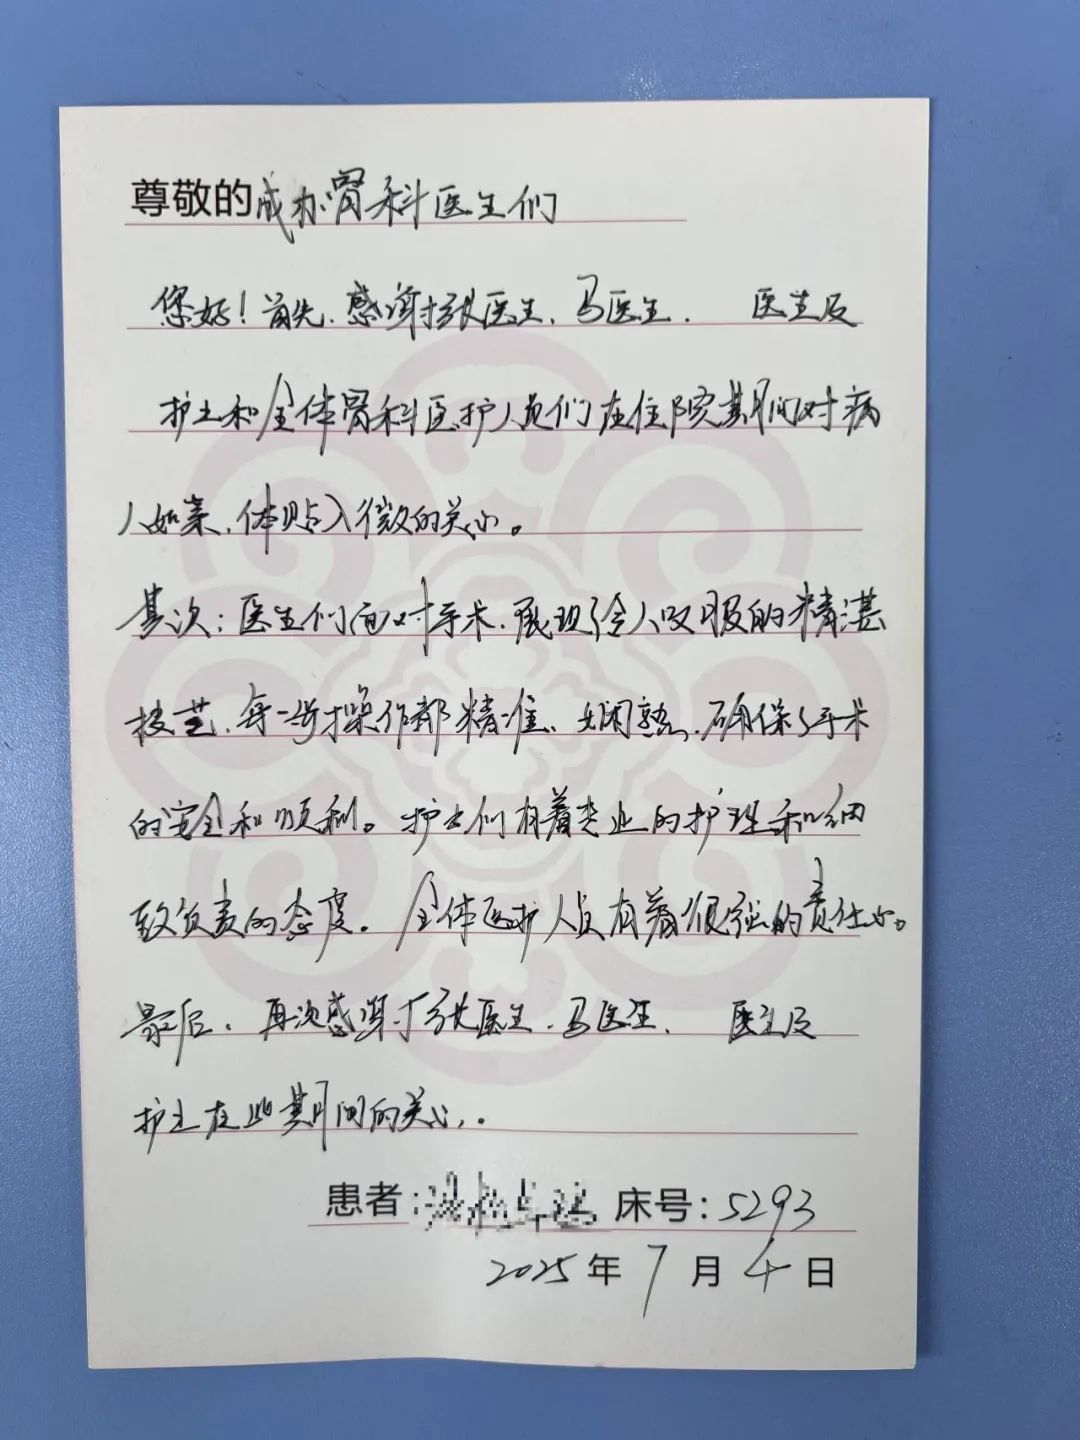 尊敬的成办骨科医生们
您好！首先，感谢张医生、马医生、 医生及
护士和全体骨科医护人员们在住院期间对病
人如亲，体贴入微的关心。
其次：医生们面对手术，展现了令人叹服的精湛
技艺，每一步操作都精准、娴熟，确保了手术
的安全和顺利。护士们有着专业的护理和细
致负责的态度。全体医护人员有着很强的责任心。
最后，再次感谢 张医生、马医生、 医生及
护士在此期间的关心。
患者: 床号:5293
2025年7月4日